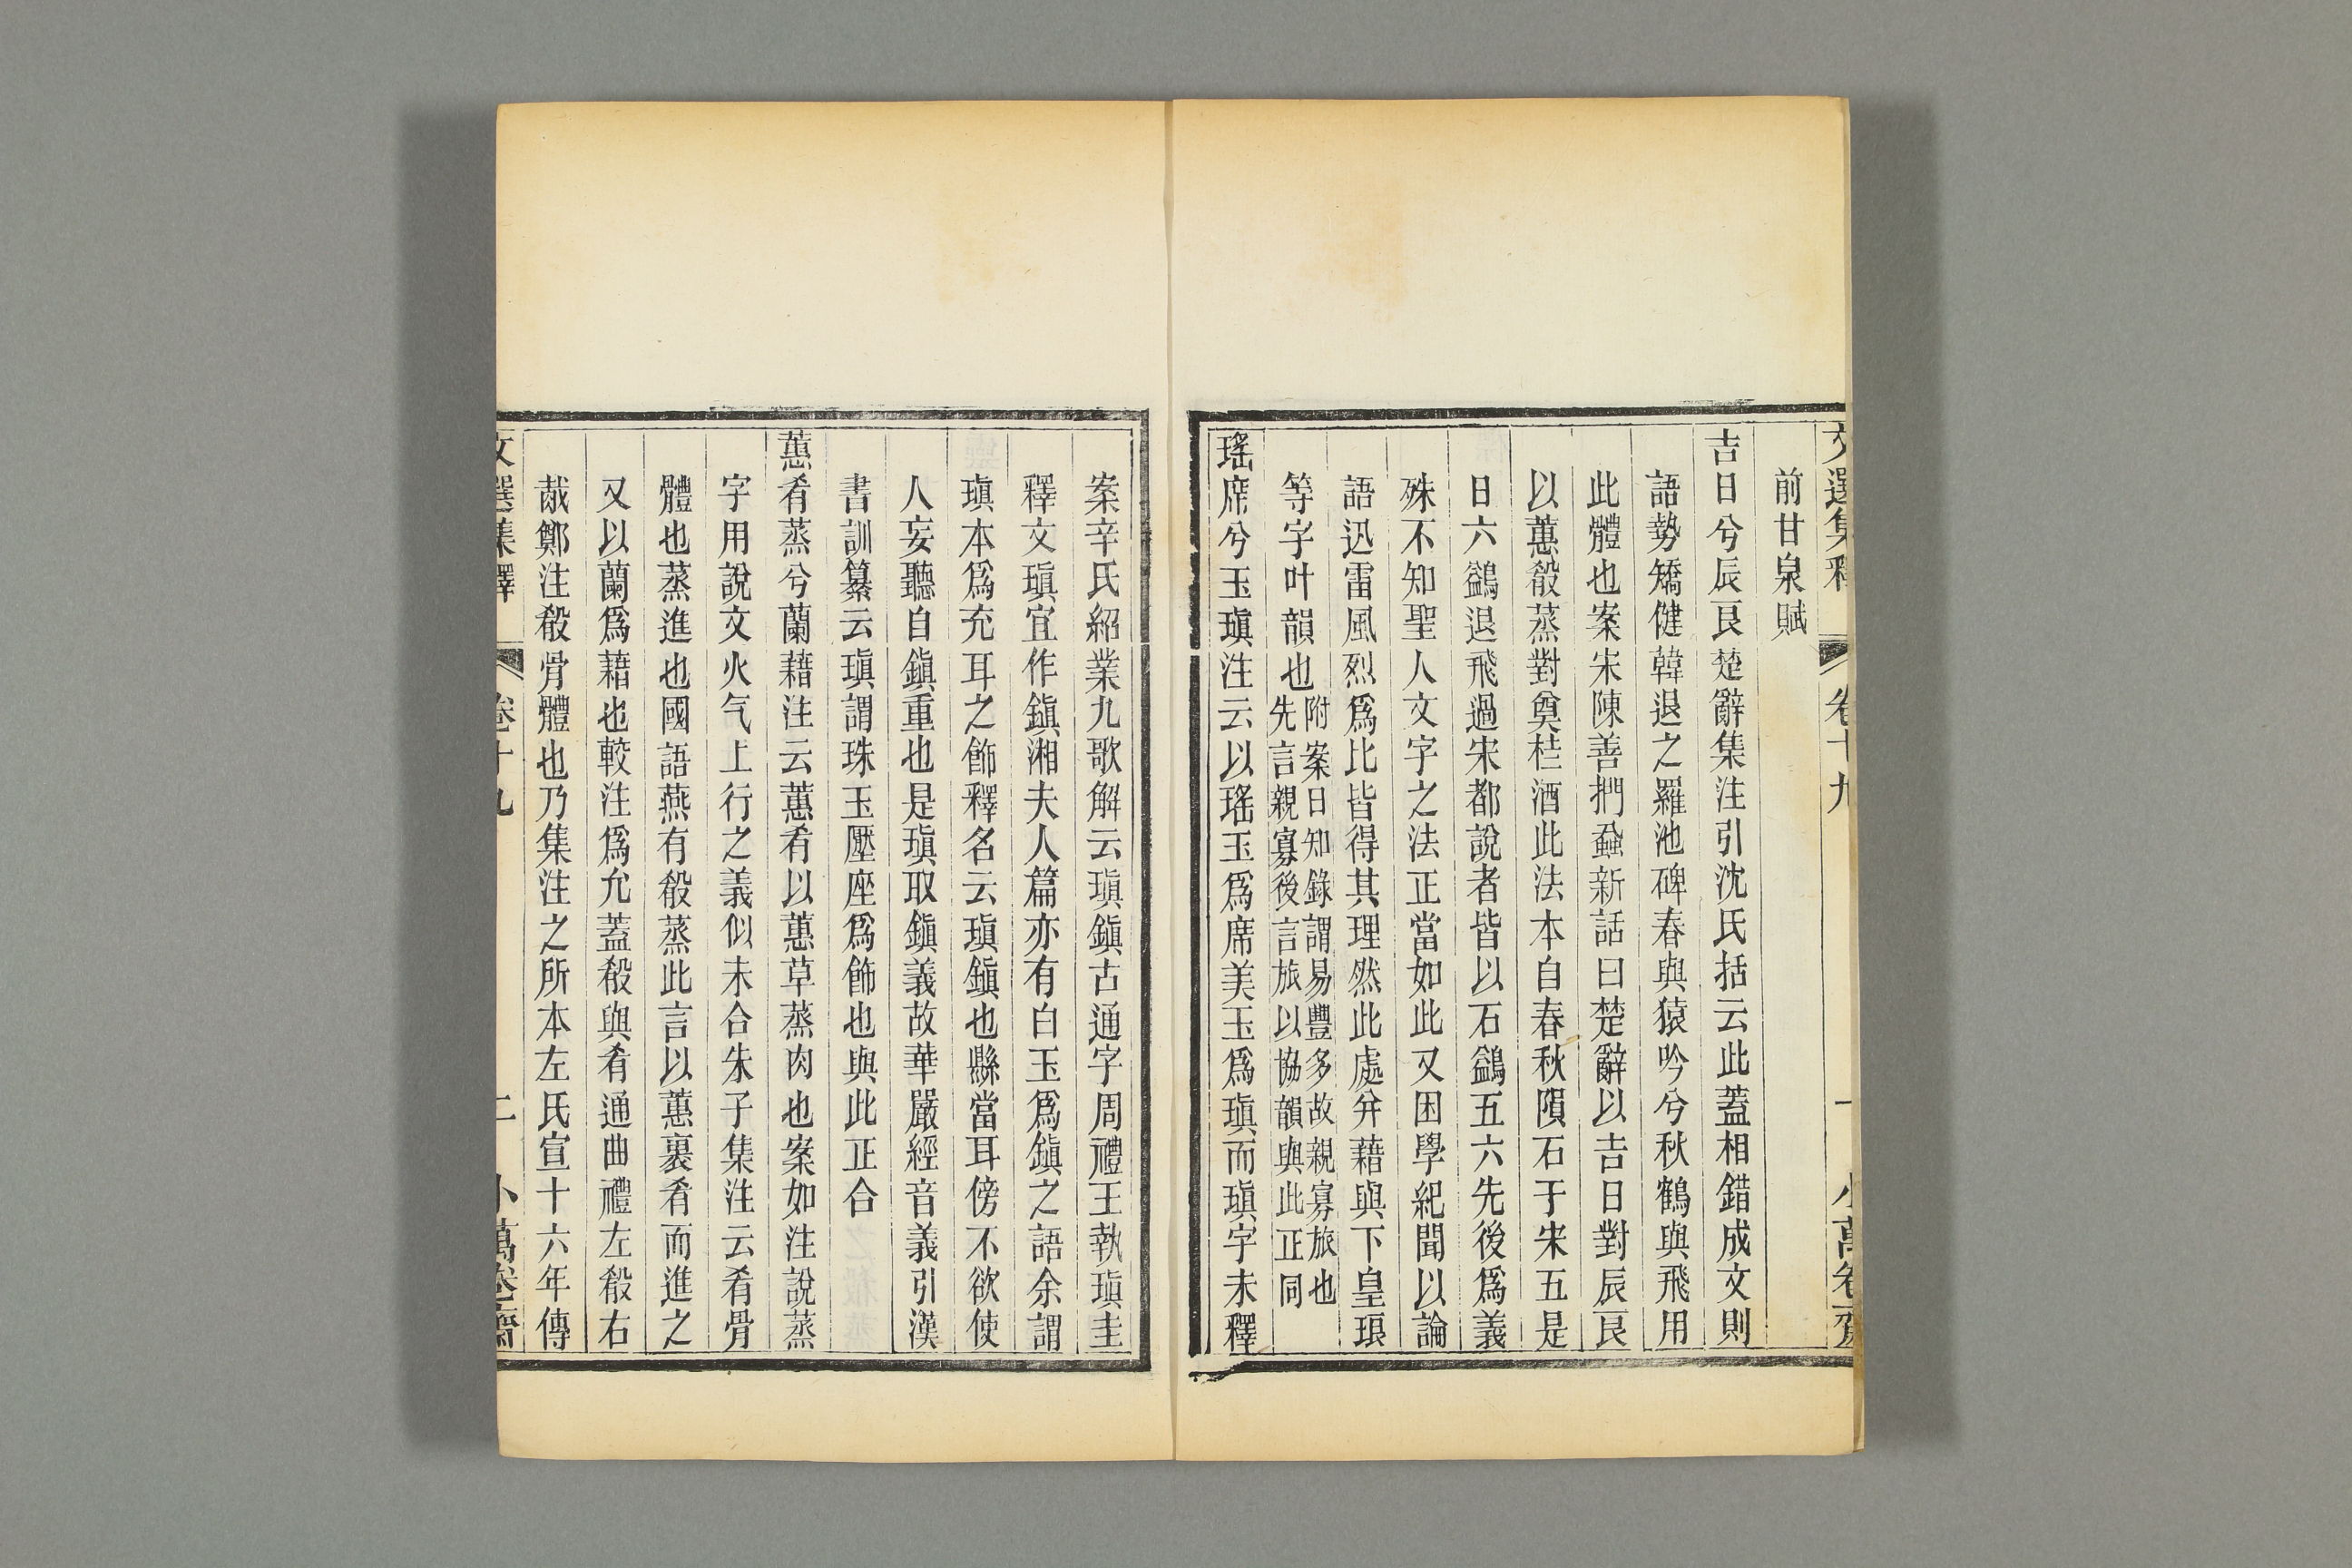 文選集釋 卷十九 一 小萬卷齋
前甘泉賦
吉日兮辰良楚辭集注引沈氏括云此蓋相錯成文則
語勢矯健韓退之羅池碑春與猿吟兮秋鶴與飛用
此體也案宋陳善捫蝨新話曰楚辭以吉日對辰良
以蕙殽蒸對奠桂酒此法本自春秋隕石于宋五是
日六鷁退飛過宋都說者皆以石鷁五六先後爲義
殊不知聖人文字之法正當如此又困學紀聞以論
語迅雷風烈爲比皆得其理然此處并藉與下皇琅
等字叶韻也附案日知錄謂易豐多故親寡旅也
先言親寡後言旅以協韻與此正同
瑤席兮玉瑱注云以瑤玉爲席美玉爲瑱而瑱字未釋
案辛氏紹業九歌解云瑱鎭古通字周禮王執瑱圭
釋文瑱宜作鎭湘夫人篇亦有白玉爲鎭之語余謂
瑱本爲充耳之飾釋名云瑱鎭也縣當耳傍不欲使
人妄聽自鎭重也是瑱取鎭義故華嚴經音義引漢
書訓纂云瑱謂珠玉壓座爲飾也與此正合
蕙肴蒸兮蘭藉注云蕙肴以蕙草蒸肉也案如注說蒸
字用說文火气上行之義似未合朱子集注云肴骨
體也蒸進也國語燕有殽蒸此言以蕙裹肴而進之
又以蘭爲藉也較注爲允蓋殽與肴通曲禮左殽右
胾鄭注殽骨體也乃集注之所本左氏宣十六年傳
文選集釋 卷十九 二 小萬卷齋